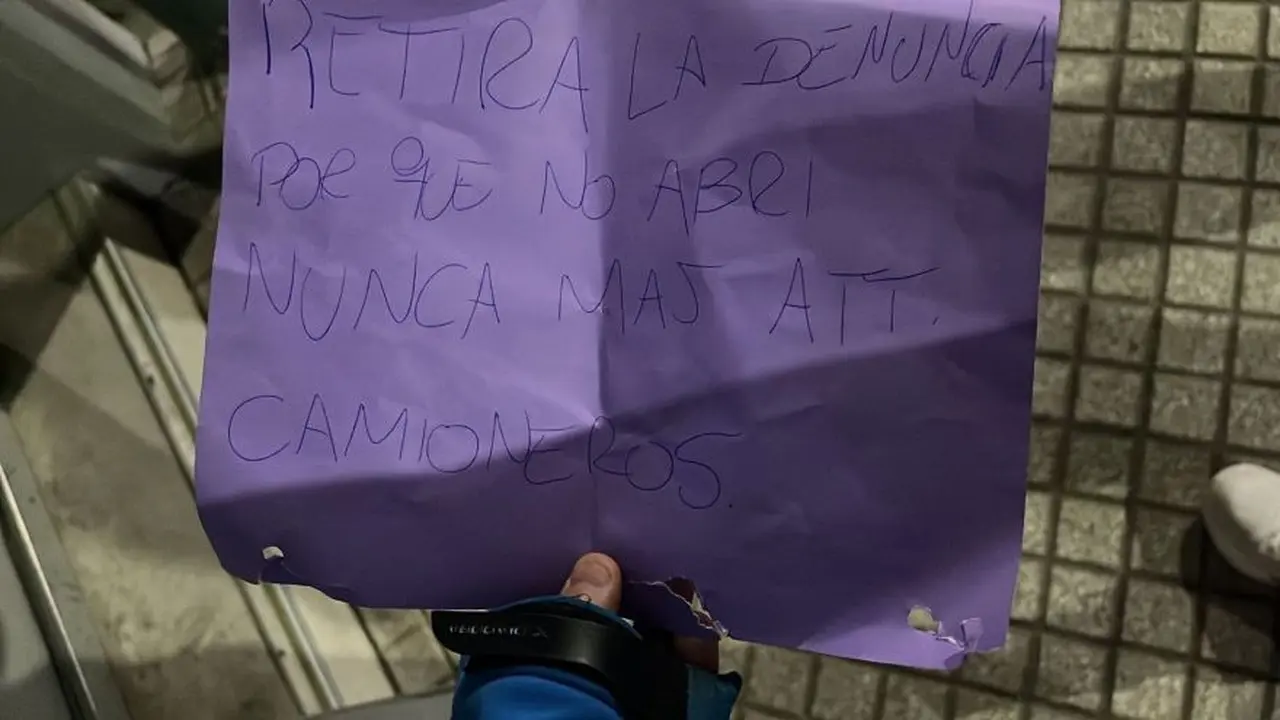 RETIRA LA DENUNCIA
POR QUE NO ABRI
NUNCA MAS ATT.
CAMIONEROS.